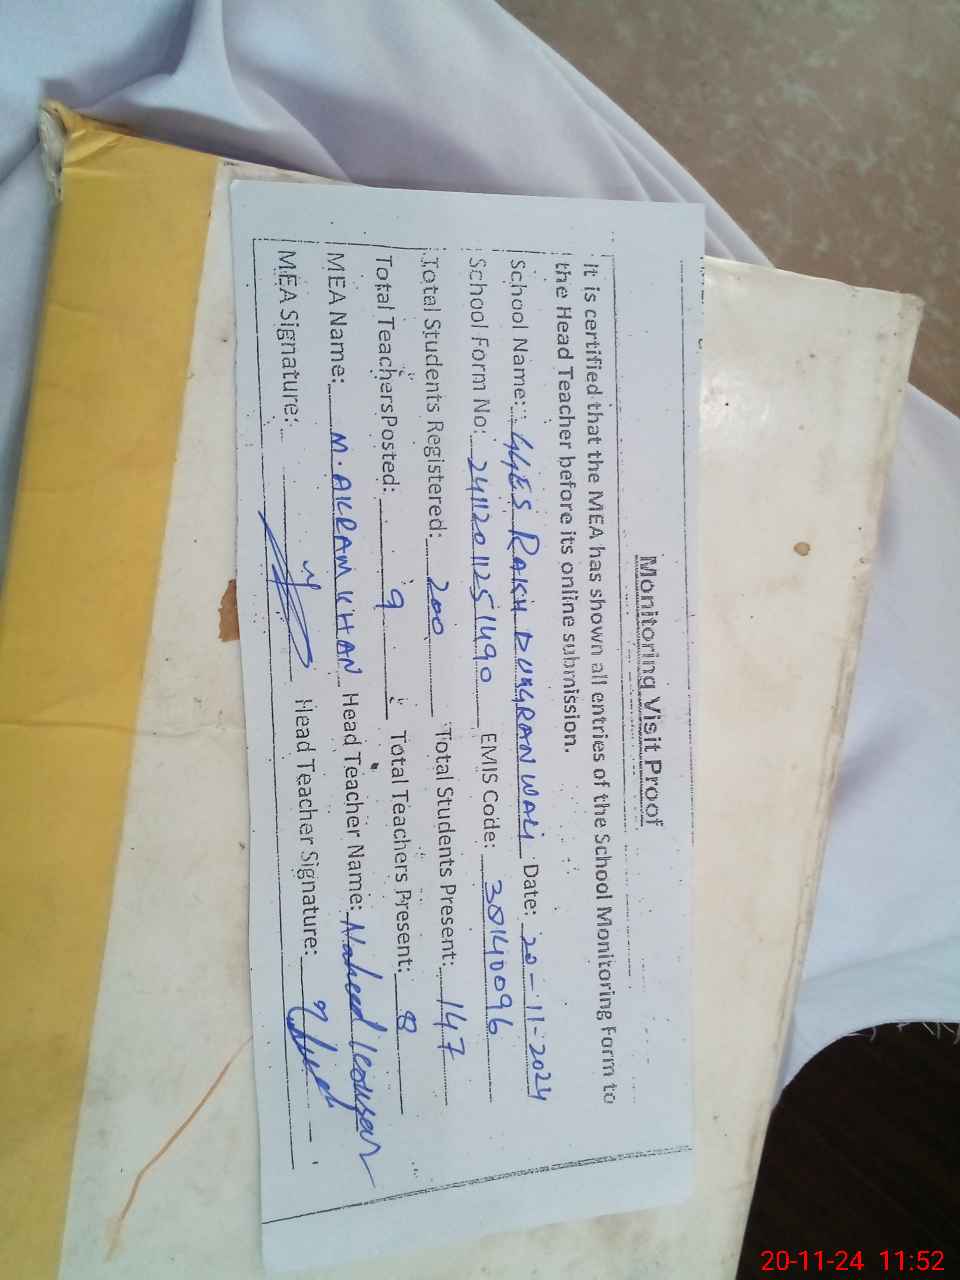 Monitoring Visit Proof
It is certified that the MEA has shown all entries of the School Monitoring Form to
the Head Teacher before its online submission.
School Name: GGES RAKH DUGGRANWALI Date: 20-11-2024
School Form No: 24112011251490 EMIS Code: 38140096
Total Students Registered: 200 Total Students Present: 147
Total Teachers Posted: 9 Total Teachers Present: 8
MEA Name: M. AKRAM KHAN Head Teacher Name: Naheed Kousar
MEA Signature: Head Teacher Signature:
20-11-24 11:52